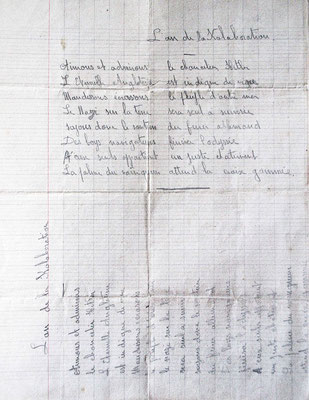 L'an de la Kolaboration
Aimons et admirons le chancelier Hitler
L'Eternelle Angleterre est indigne de vivre
Maudissons écrasons le peuple d'outre mer
Le Nazi sur la terre sera seul a survivre
soyons donc le soutien du furer allemand
Des boys navigateurs finira l'odyssée
A eux seuls appartient un juste chatiment
La palme du vainqueur attend la croix gammée
L'an de la Kolaboration
Aimons et admirons
le chancelier Hitler
L'Eternelle Angleterre
est indigne de vivre
Maudissons écrasons
le Nazi sur la terre
sera seul a survivre
soyons donc le soutien
du furer allemand
Des boys navigateurs
finira l'odyssée
A eux seuls appartient
un juste chatiment
La palme du vainqueur